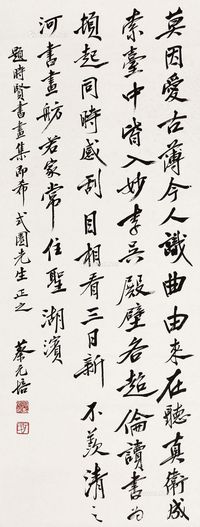 莫因愛古薄今人識曲由來在聽真衛成
索臺中皆入妙李吳殿壁各超倫讀書為
煩起同時感刮目相看三日新 不羨清之
河書畫舫若家常住聖湖濱
題時賢書畫集即希 式園先生正之
蔡元培